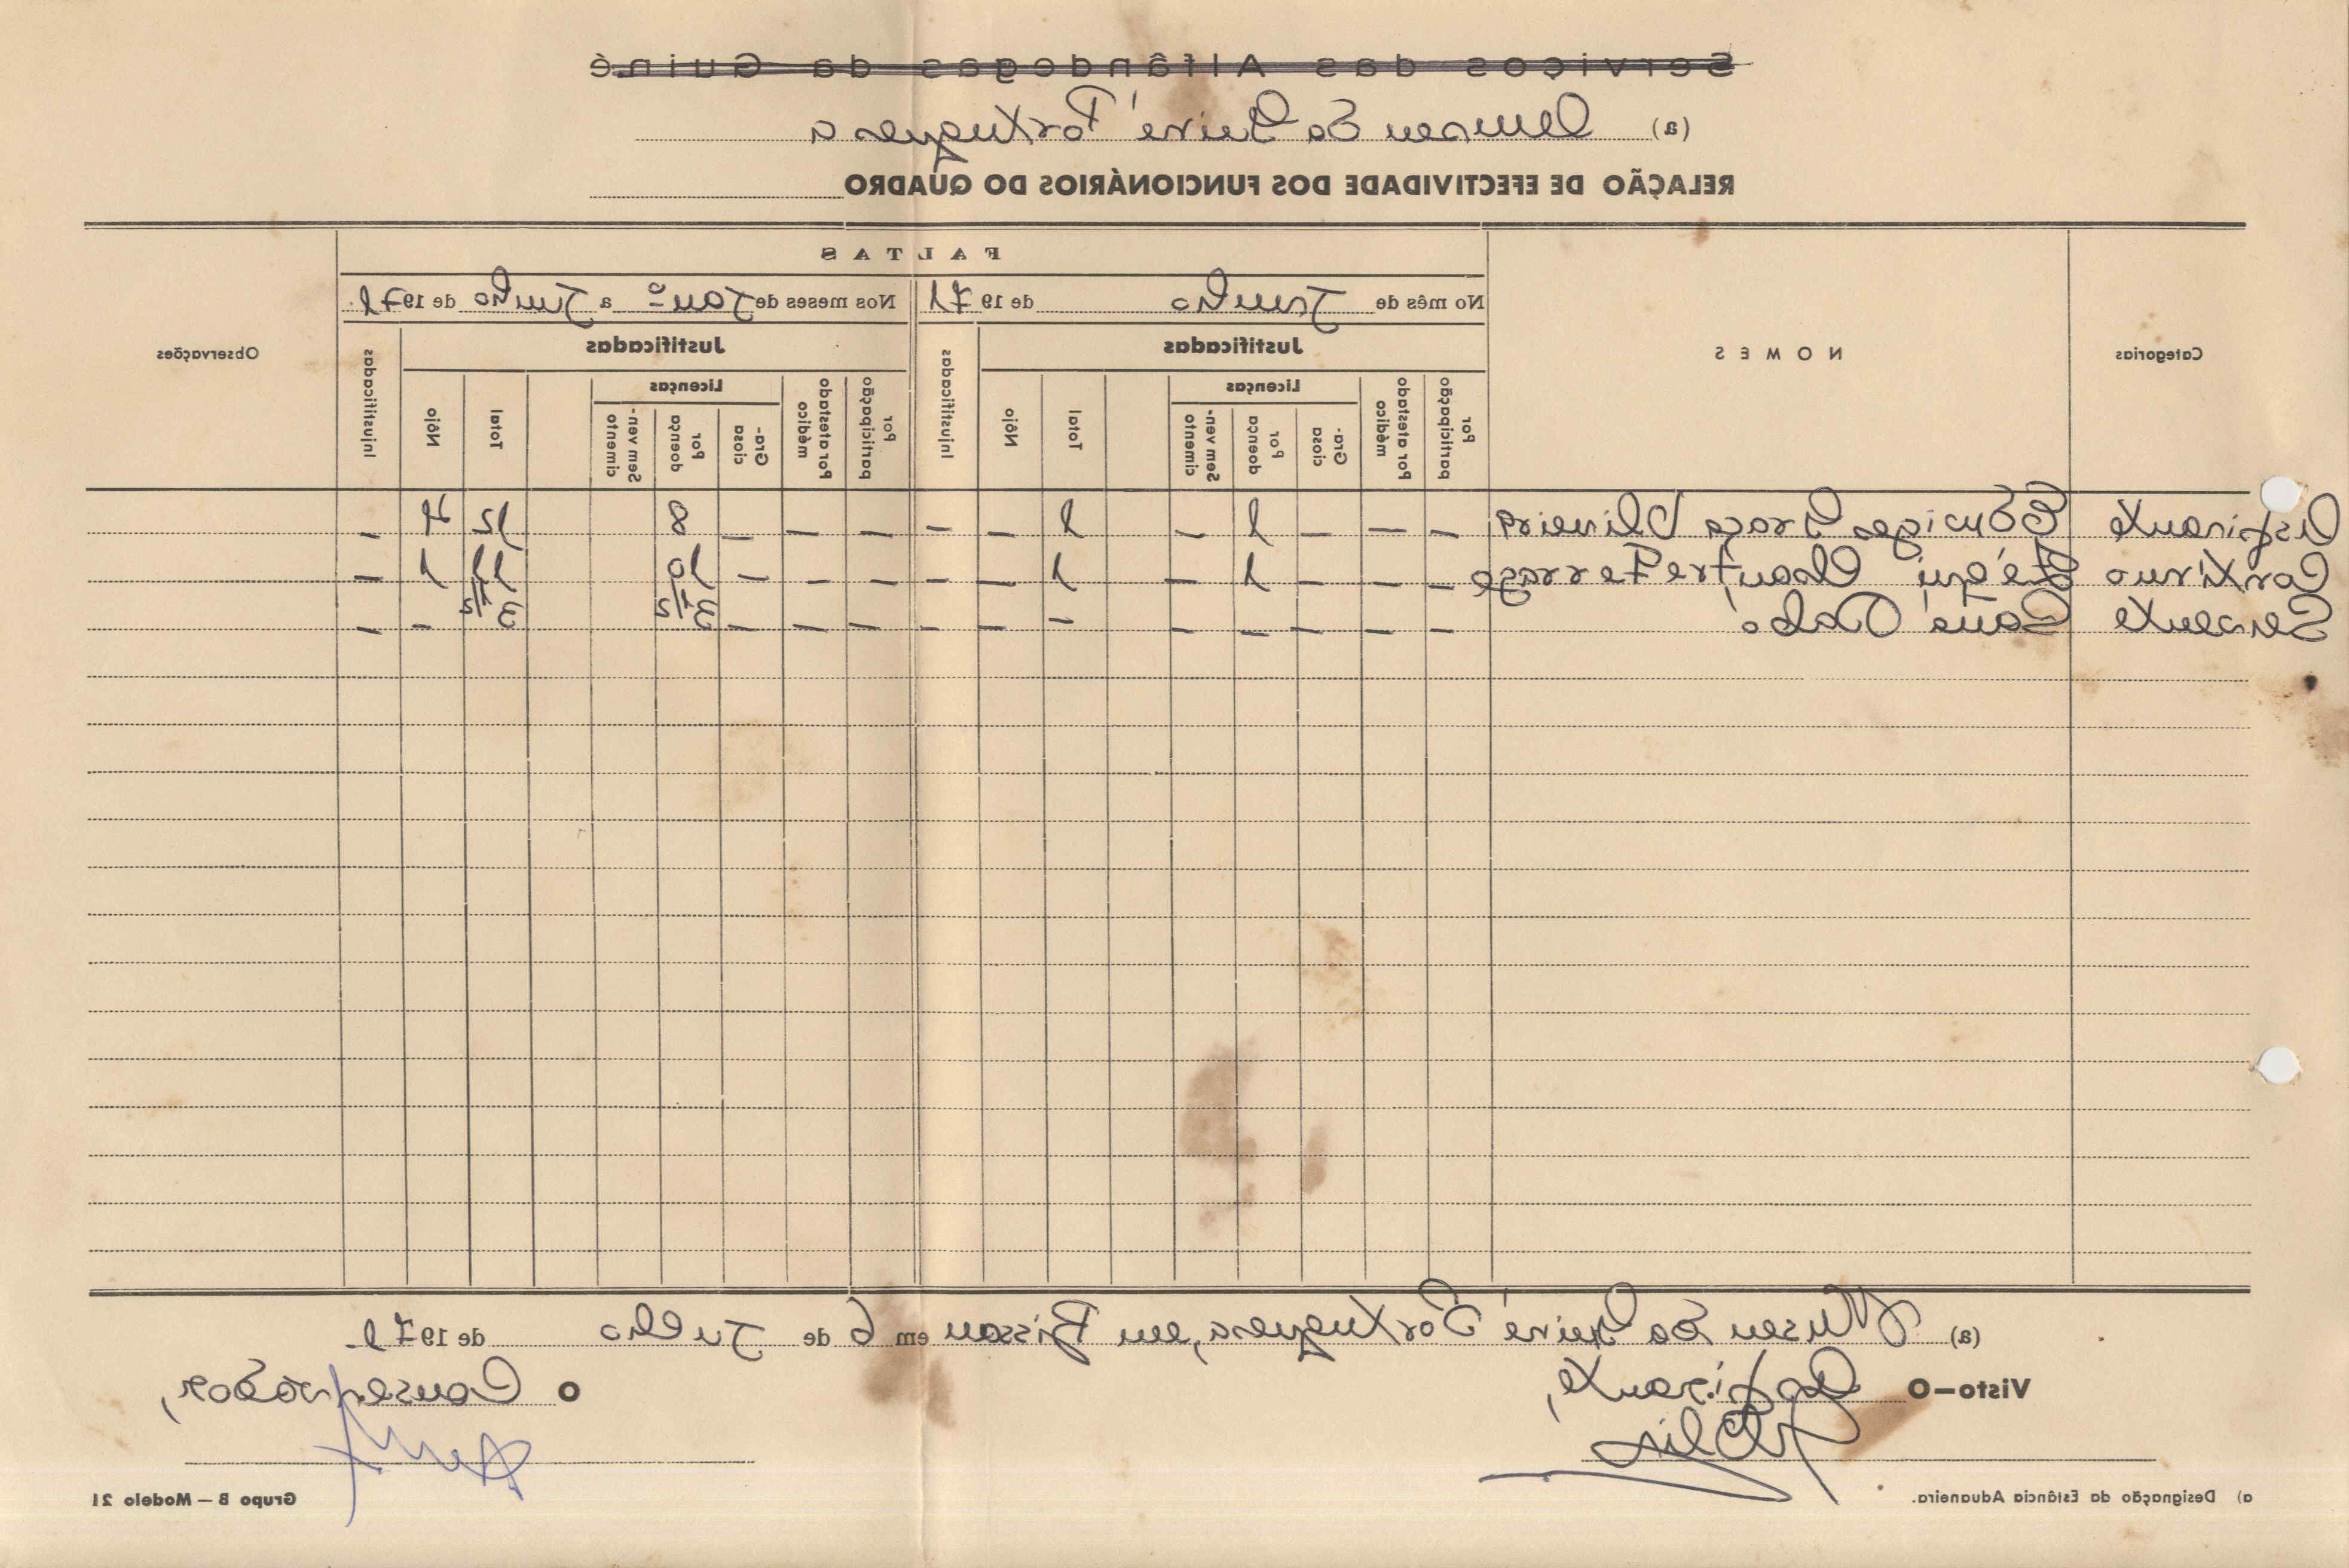 Serviços das Alfândegas da Guiné
(a) Museu da Guiné Portuguesa
RELAÇÃO DE EFECTIVIDADE DOS FUNCIONÁRIOS DO QUADRO
Categorias
NOMES
FALTAS
Observações
No mês de Junho de 1971
Nos meses de Janº a Junho de 1971.
Justificadas
Injustificadas
Justificadas
Injustificadas
Por participação
Por atestado médico
Licenças
Graciosa
Por doença
Sem vencimento
Total
Nôjo
Por participação
Por atestado médico
Licenças
Graciosa
Por doença
Sem vencimento
Total
Nôjo
Aspirante — — — 1 — 1 — — — — — 8 — 12 4 —
— — — 1 — 1 — — — — — 10 11 1 —
Servente — — — — — — — — — — — 3 1/2 3 1/2 — —
(a) Museu da Guiné Portuguesa, em Bissau em 6 de Julho de 1971
Visto—O Aspirante,
O Conservador,
a) Designação da Estância Aduaneira.
Grupo B — Modelo 21